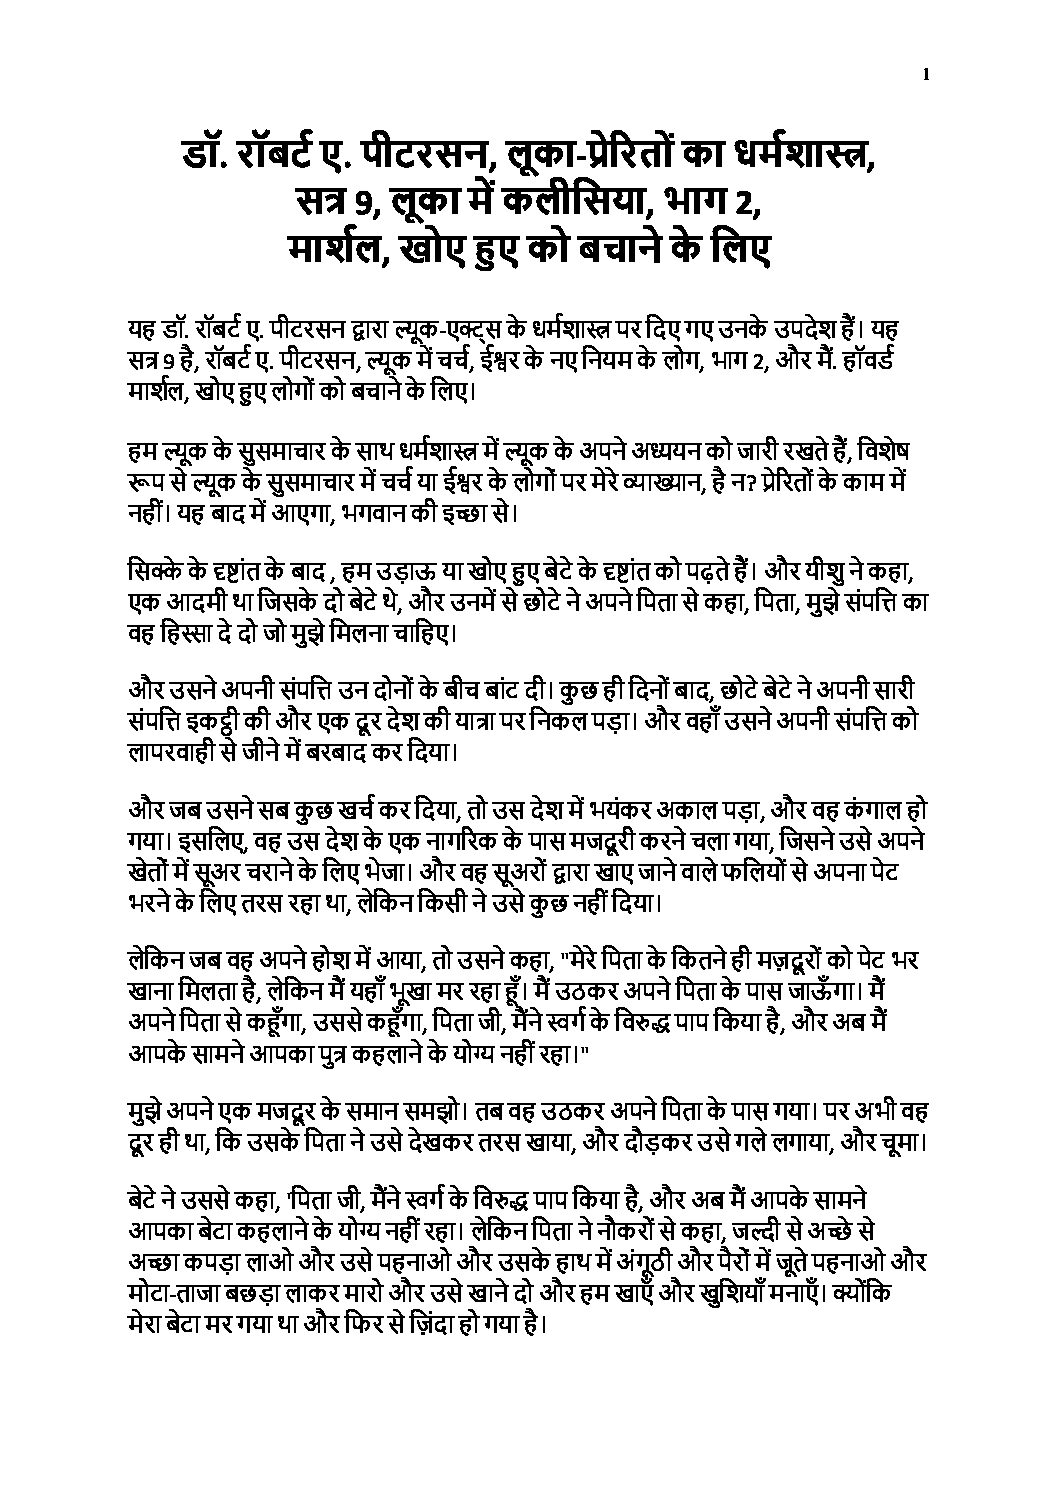 1
डॉ. रॉबर्ट ए. पीटरसन, लूका-प्रेरितों का धर्मशास्त्र,
सत्र 9, लूका में कलीसिया, भाग 2,
मार्शल, खोए हुए को बचाने के लिए
यह डॉ. रॉबर्ट ए. पीटरसन द्वारा ल्यूक-एक्ट्स के धर्मशास्त्र पर दिए गए उनके उपदेश हैं। यह
सत्र 9 है, रॉबर्ट ए. पीटरसन, ल्यूक में चर्च, ईश्वर के नए नियम के लोग, भाग 2, और मैं. हॉवर्ड
मार्शल, खोए हुए लोगों को बचाने के लिए।
हम ल्यूक के सुसमाचार के साथ धर्मशास्त्र में ल्यूक के अपने अध्ययन को जारी रखते हैं, विशेष
रूप से ल्यूक के सुसमाचार में चर्च या ईश्वर के लोगों पर मेरे व्याख्यान, है न? प्रेरितों के काम में
नहीं। यह बाद में आएगा, भगवान की इच्छा से।
सिक्के के दृष्टांत के बाद , हम उड़ाऊ या खोए हुए बेटे के दृष्टांत को पढ़ते हैं। और यीशु ने कहा,
एक आदमी था जिसके दो बेटे थे, और उनमें से छोटे ने अपने पिता से कहा, पिता, मुझे संपत्ति का
वह हिस्सा दे दो जो मुझे मिलना चाहिए।
और उसने अपनी संपत्ति उन दोनों के बीच बांट दी। कुछ ही दिनों बाद, छोटे बेटे ने अपनी सारी
संपत्ति इकट्ठी की और एक दूर देश की यात्रा पर निकल पड़ा। और वहाँ उसने अपनी संपत्ति को
लापरवाही से जीने में बरबाद कर दिया।
और जब उसने सब कुछ खर्च कर दिया, तो उस देश में भयंकर अकाल पड़ा, और वह कंगाल हो
गया। इसलिए, वह उस देश के एक नागरिक के पास मजदूरी करने चला गया, जिसने उसे अपने
खेतों में सूअर चराने के लिए भेजा। और वह सूअरों द्वारा खाए जाने वाले फलियों से अपना पेट
भरने के लिए तरस रहा था, लेकिन किसी ने उसे कुछ नहीं दिया।
लेकिन जब वह अपने होश में आया, तो उसने कहा, "मेरे पिता के कितने ही मज़दूरों को पेट भर
खाना मिलता है, लेकिन मैं यहाँ भूखा मर रहा हूँ। मैं उठकर अपने पिता के पास जाऊँगा। मैं
अपने पिता से कहूँगा, उससे कहूँगा, पिता जी, मैंने स्वर्ग के विरुद्ध पाप किया है, और अब मैं
आपके सामने आपका पुत्र कहलाने के योग्य नहीं रहा।"
मुझे अपने एक मजदूर के समान समझो। तब वह उठकर अपने पिता के पास गया। पर अभी वह
दूर ही था, कि उसके पिता ने उसे देखकर तरस खाया, और दौड़कर उसे गले लगाया, और चूमा।
बेटे ने उससे कहा, 'पिता जी, मैंने स्वर्ग के विरुद्ध पाप किया है, और अब मैं आपके सामने
आपका बेटा कहलाने के योग्य नहीं रहा। लेकिन पिता ने नौकरों से कहा, जल्दी से अच्छे से
अच्छा कपड़ा लाओ और उसे पहनाओ और उसके हाथ में अंगूठी और पैरों में जूते पहनाओ और
मोटा-ताजा बछड़ा लाकर मारो और उसे खाने दो और हम खाएँ और खुशियाँ मनाएँ। क्योंकि
मेरा बेटा मर गया था और फिर से ज़िंदा हो गया है।